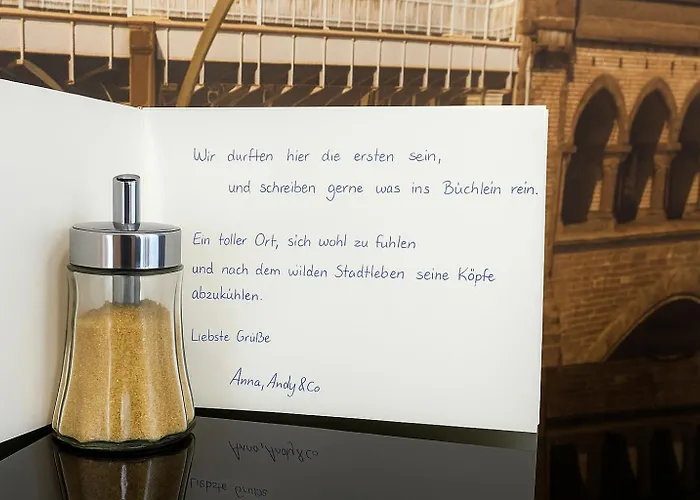 Wir durften hier die ersten sein,
und schreiben gerne was ins Büchlein rein.
Ein toller Ort, sich wohl zu fühlen
und nach dem wilden Stadtleben seine Köpfe
abzukühlen.
Liebste Grüße
Anna, Andy & Co